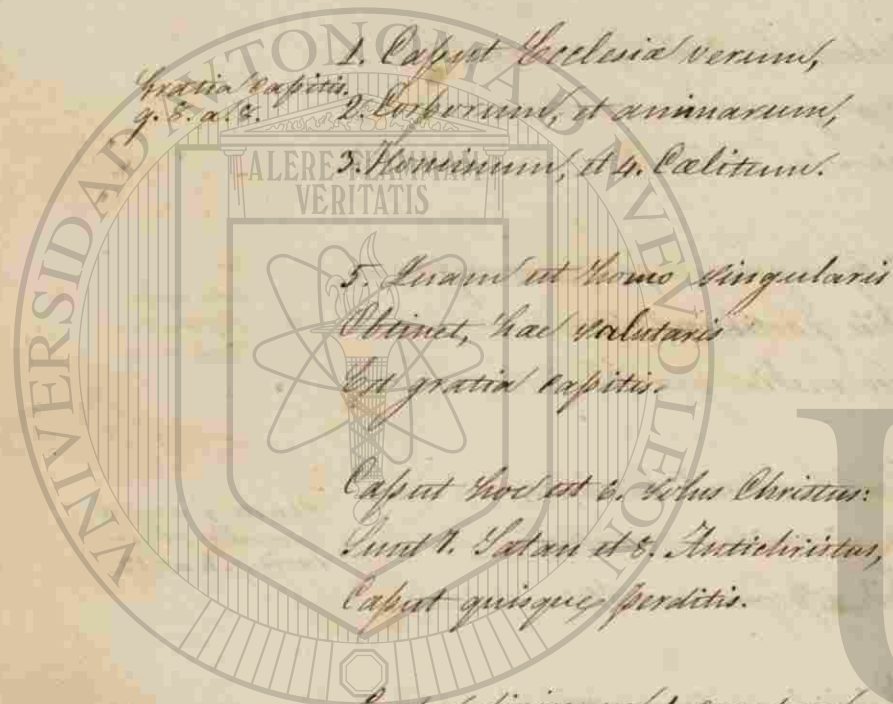 Gratia capitis.
q. 8. a. 8.
1. Caput Ecclesiæ verum,
2. Corporum, et animarum,
3. Hominum, et 4. Cælitum.
5. Quam ut homo singularis
Obtinet, hac salutaris
Est gratia capitis.
Caput hoc est 6. solus Christus:
Sunt 7. Satan et 8. Antichristus,
Caput quisque perditis.
UNIVERSIDAD AUTONOMA DE NUEVO LEON
ALERE FLAMMAM
VERITATIS